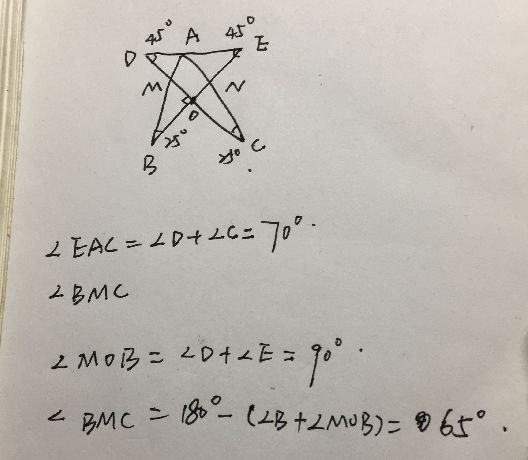 45° A 45°
D E
M N
O
B 25° 25° C
∠EAC = ∠D+∠C = 70°.
∠BMC
∠MOB = ∠D+∠E = 90°.
∠BMC = 180° - (∠B+∠MOB) = 65°.